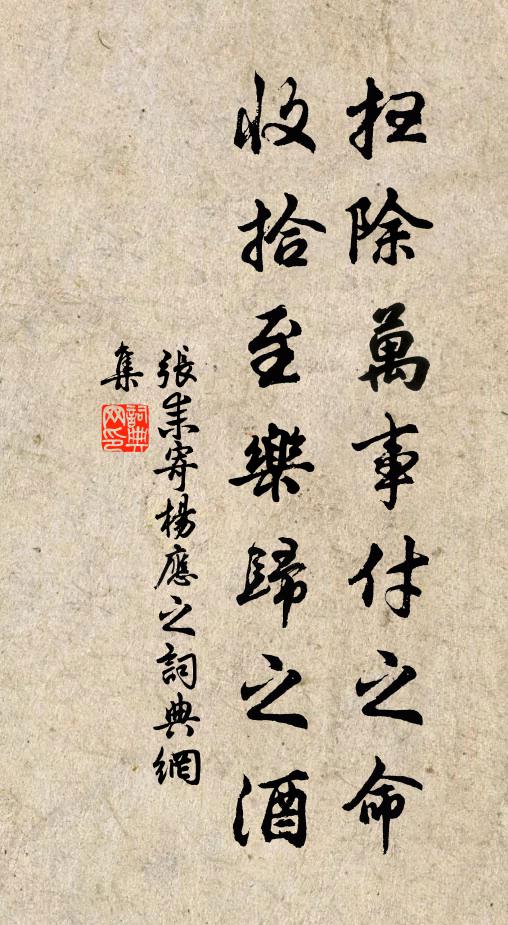 扫除萬事付之命
收拾至樂歸之酒
張耒寄楊應之詞典網
集
詞典網印